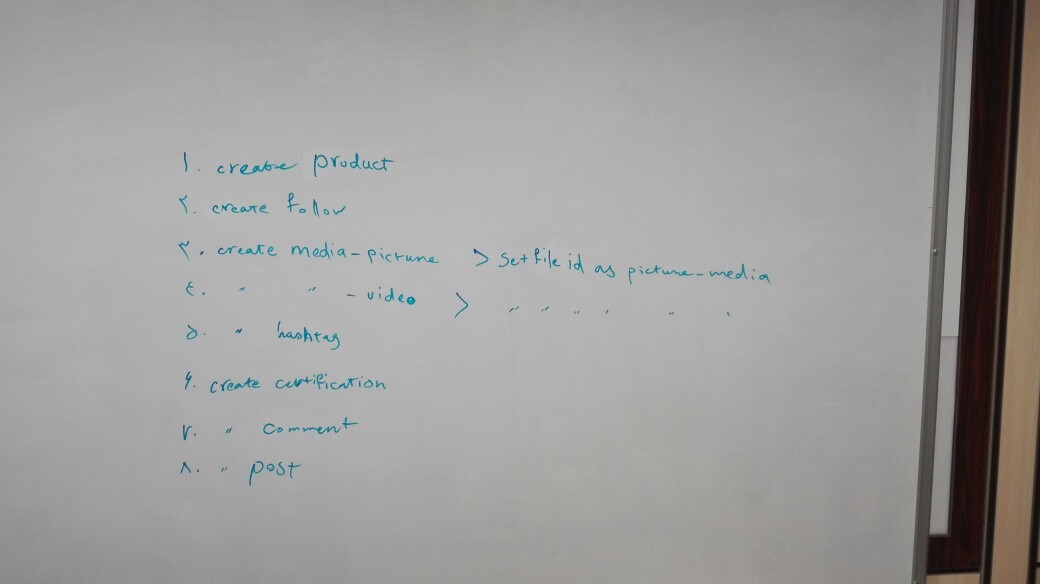 ۱. create product
۲. create follow
۳. create media-picture > set file id as picture-media
۴. " " - video > " " " " " "
۵. " hashtag
۶. create certification
۷. " comment
۸. " post